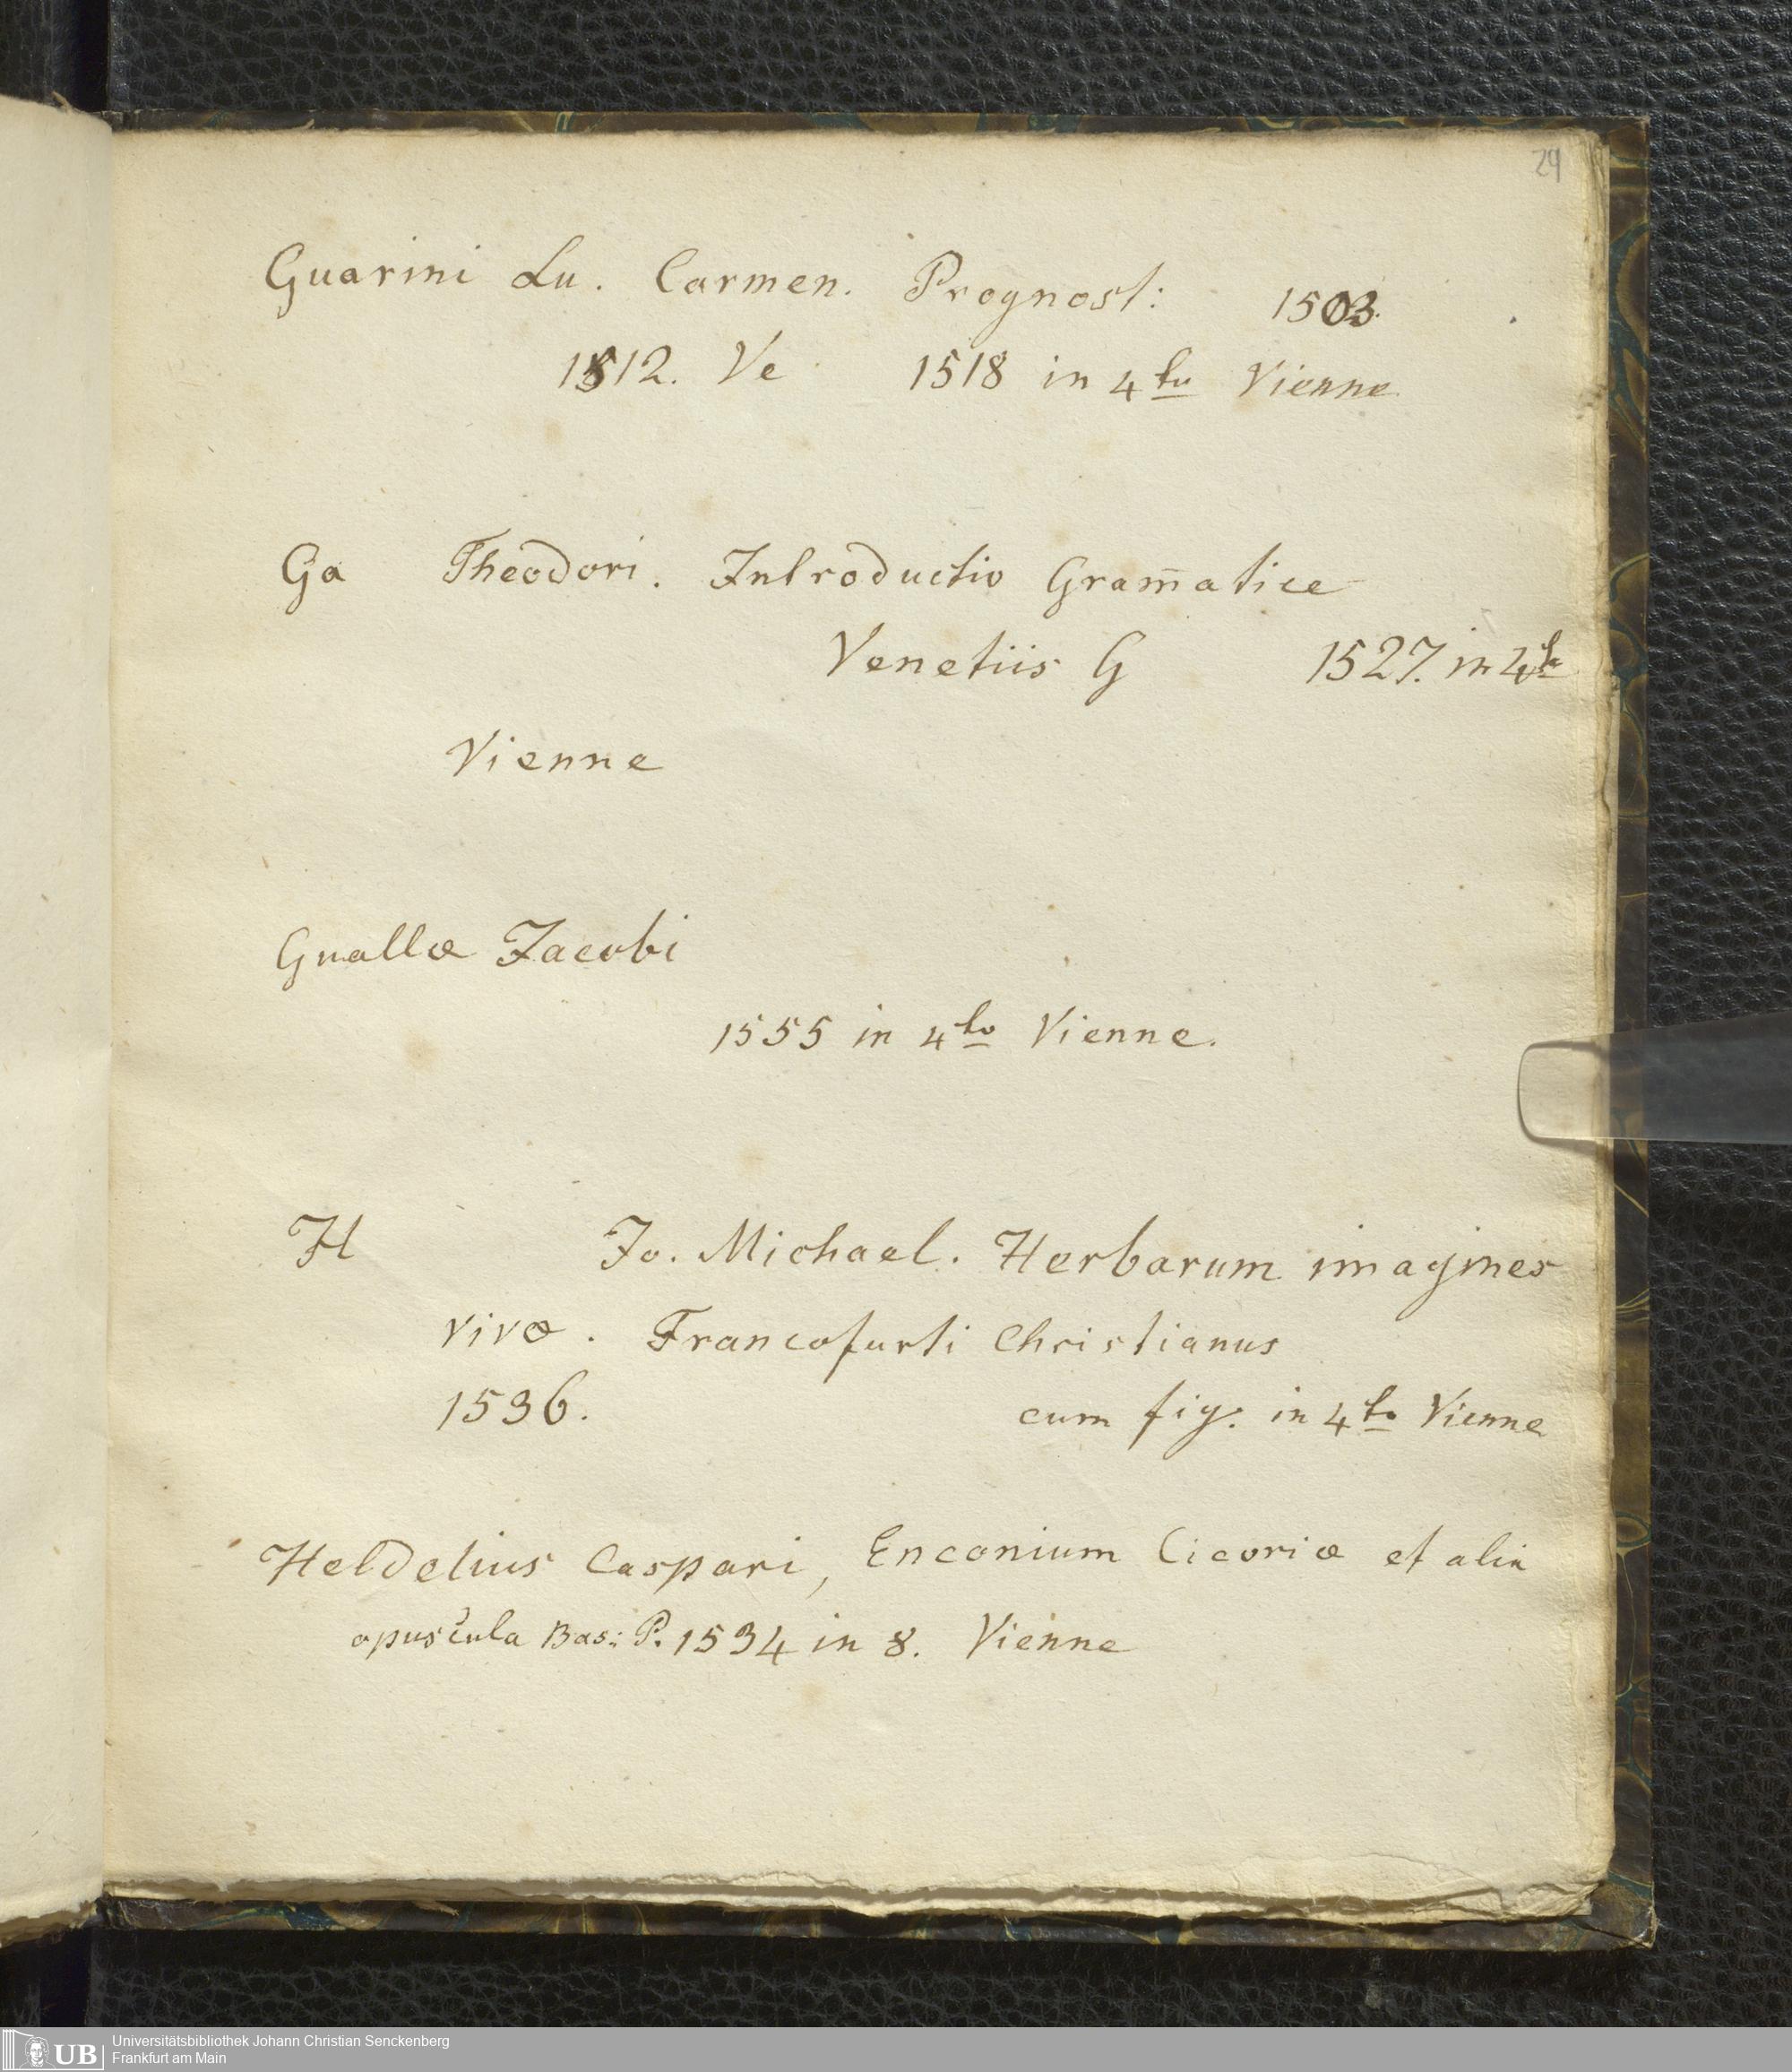 24
Guarini Lu. Carmen. Prognost: 1503.
1512. Ve 1518 in 4to Vienne
Ga Theodori. Introductio Gram̄atice
Venetiis G 1527. in 4to
Vienne
Guallæ Jacobi
1555 in 4to Vienne.
H Jo. Michael. Herbarum imagines
vivæ. Francofurti Christianus
1536. cum fig: in 4to Vienne
Heldelius Caspari, Enconium Cicoriæ et alia
opuscula Bas: P. 1534 in 8. Vienne
UB Universitätsbibliothek Johann Christian Senckenberg
Frankfurt am Main